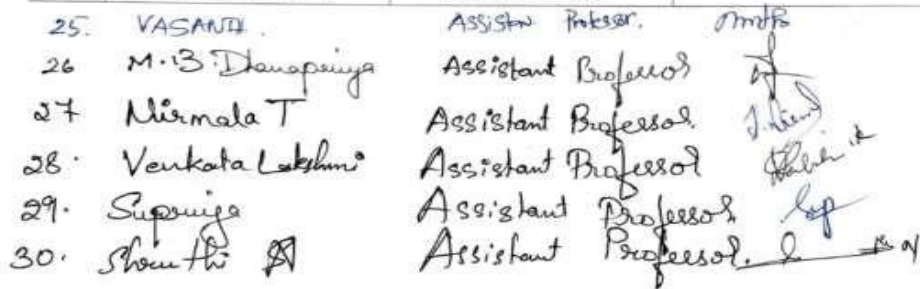 25. VASANTH. Assistan Professor.
26 M.B. Dhanapriya Assistant Professor
27 Nirmala T Assistant Professor.
28. Venkata Lakshmi Assistant Professor
29. Supriya Assistant Professor.
30. Shruthi Assistant Professor.